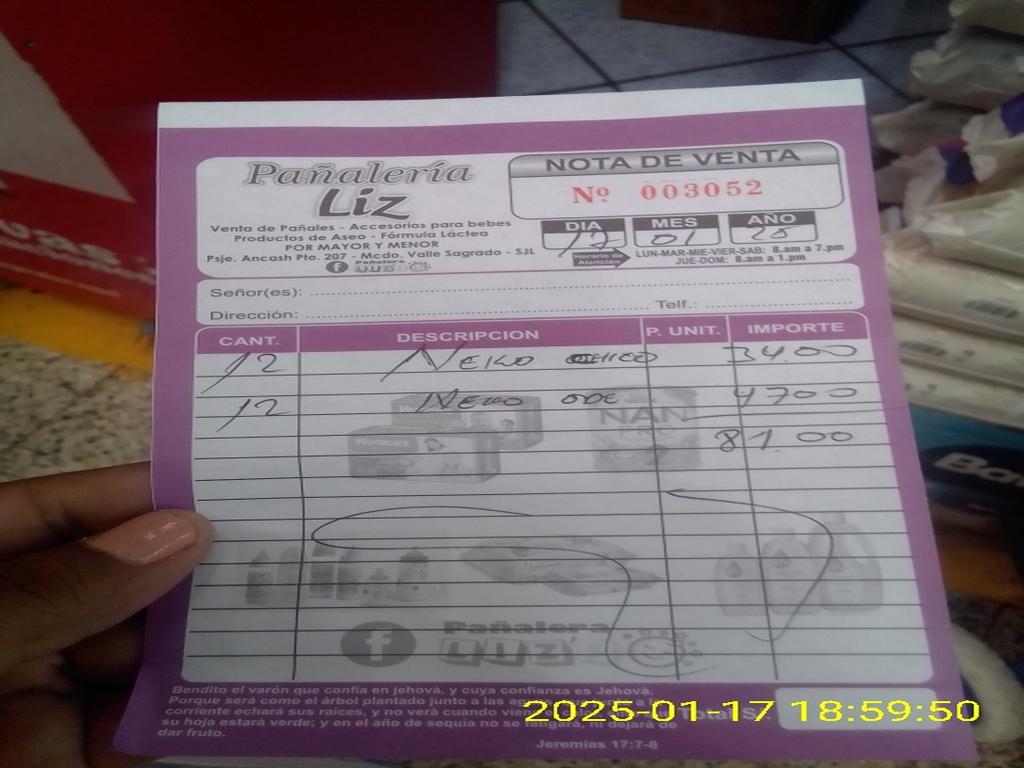 Pañalería
Liz
Venta de Pañales - Accesorios para bebes
Productos de Aseo - Fórmula Láctea
POR MAYOR Y MENOR
Psje. Ancash Pto. 207 - Mcdo. Valle Sagrado - SJL
Pañalera
LIZ
NOTA DE VENTA
Nº 003052
DIA MES AÑO
17 01 25
Horario de Atención
LUN-MAR-MIE-VIER-SAB: 8.am a 7.pm
JUE-DOM: 8.am a 1.pm
Señor(es):
Dirección: Telf.:
CANT. DESCRIPCION P. UNIT. IMPORTE
12 NEKO 34.00
12 NEKO 4700
81.00
HUGGIES
NAN
PRO
Pañalera
LIZ
Bendito el varón que confía en jehová, y cuya confianza es Jehová.
Porque será como el árbol plantado junto a las
corriente echará sus raíces, y no verá cuando
su hoja estará verde; y en el año de sequía no se fatigará, ni dejará de
dar fruto.
Jeremías 17:7-8
Total S/
2025-01-17 18:59:50